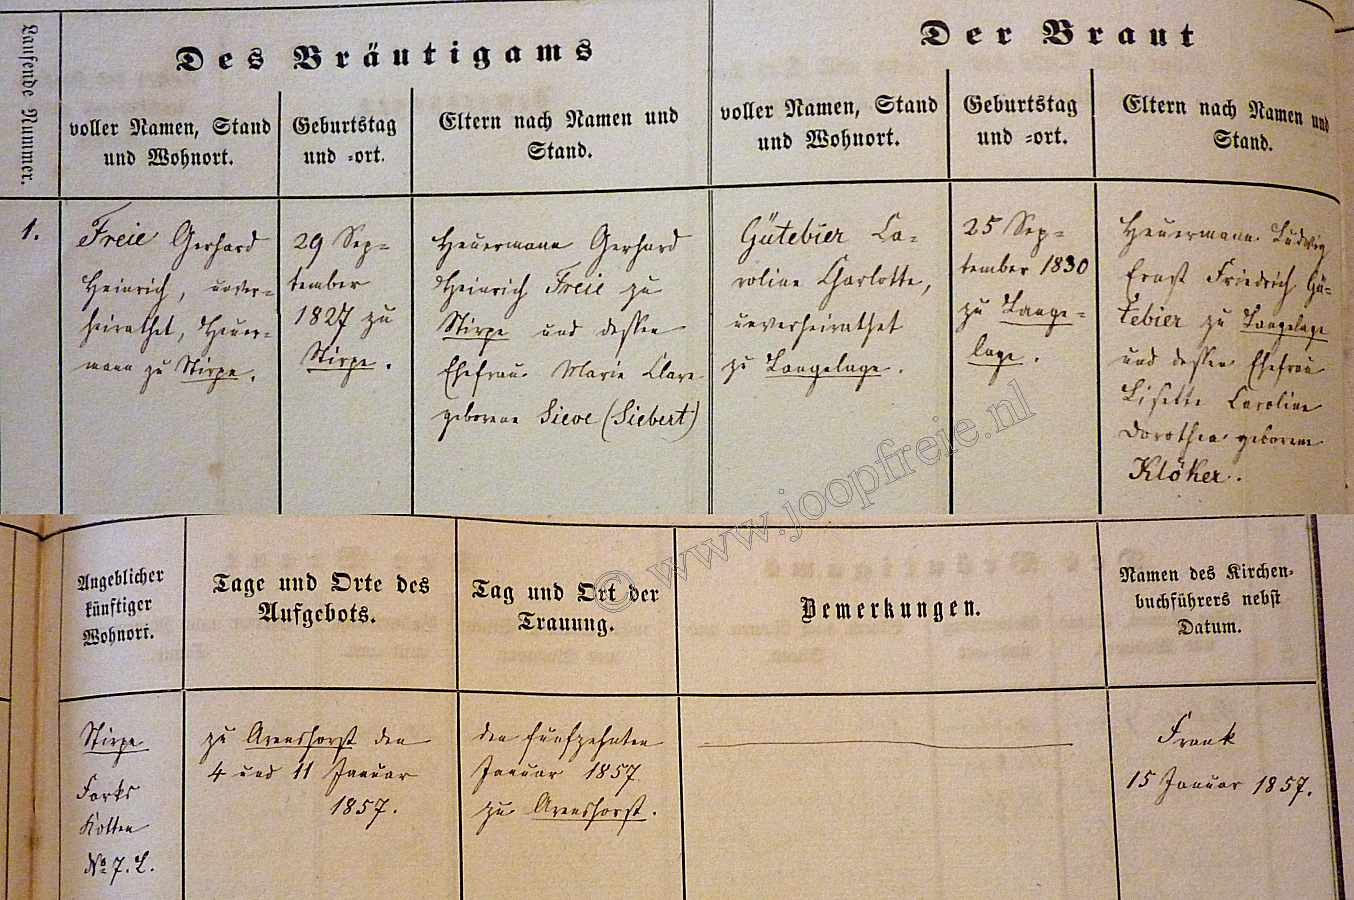 Laufende Nummer.
Des Bräutigams
voller Namen, Stand
und Wohnort.
Geburtstag
und =ort.
Eltern nach Namen und
Stand.
Der Braut
voller Namen, Stand
und Wohnort.
Geburtstag
und =ort.
Eltern nach Namen und
Stand.
1.
Freie Gerhard
Heinrich, unver-
heirathet, Heuer-
mann zu Stirpe.
29 Sep=
tember
1827 zu
Stirpe.
Heuermann Gerhard
Heinrich Freie zu
Stirpe und dessen
Ehefrau Marie Clare
geborene Sieve (Siebert)
Gütebier Ca-
roline Charlotte,
unverheirathet
zu Langelage.
25 Sep=
tember 1830
zu Lange-
lage.
Heuermann Ludwig
Ernst Friedrich Gü-
tebier zu Langelage
und dessen Ehefrau
Lisette Caroline
Dorothea geborene
Klöker.
© www.joopfreie.nl
Angeblicher
künftiger
Wohnort.
Tage und Orte des
Aufgebots.
Tag und Ort der
Trauung.
Bemerkungen.
Namen des Kirchen=
buchführers nebst
Datum.
Stirpe
Forks
Kotten
No 7. L.
zu Arenshorst den
4 und 11 Januar
1857.
den funfzehnten
Januar 1857
zu Arenshorst.
Frank
15 Januar 1857.